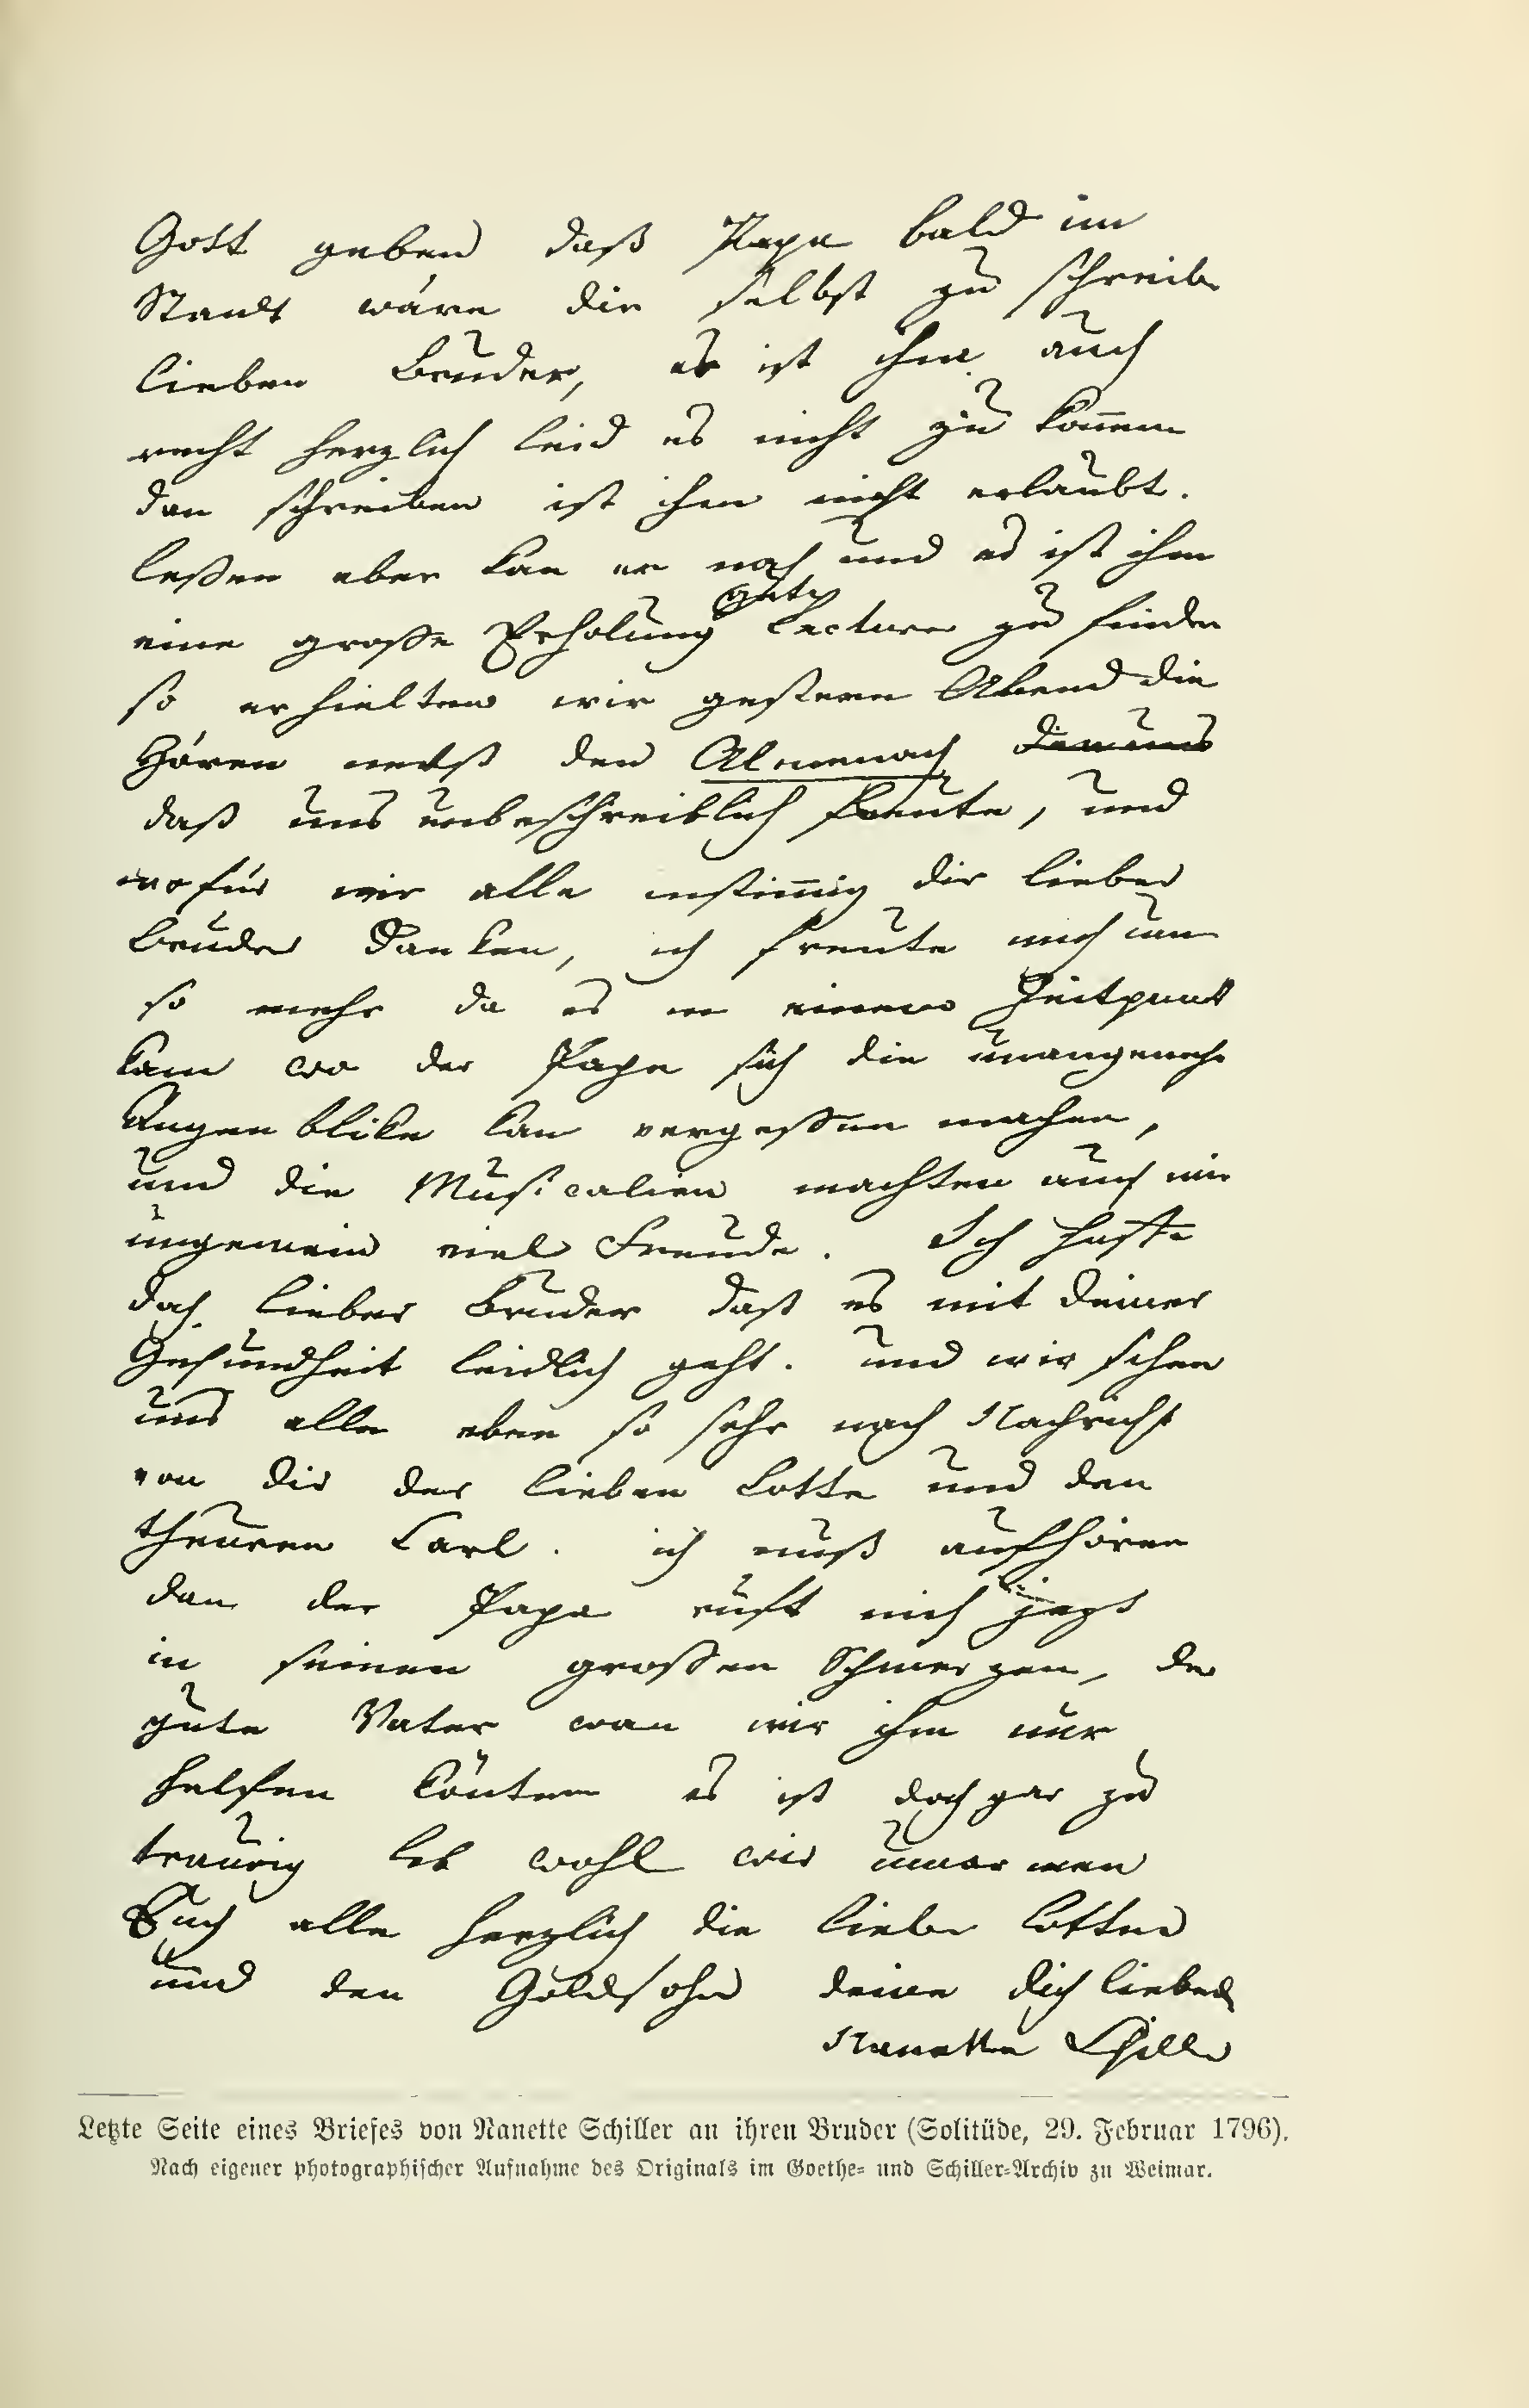 Gott geben daß Papa bald im
Standt wäre dir selbst zu schreib
lieben Bruder, es ist ihm auch
recht herzlich leid es nicht zu könnem
dan schreiben ist ihm nicht erlaubt.
leßen aber kan er noch und es ist ihm
gute
eine große Erholung Lecture zu finden
so erhielten wir gestern Abend die
Horen nebst den Almenach
daß uns unbeschreiblich freute, und
wofür wir alle instim̄ig dir lieber
Bruder Danken, ich freute mich um
so mehr da es in einem Zeitpunkt
kam wo der Papa sich die unangenehm
Augenblike kan vergeßen machen,
und die Musicalien machten auch mir
ungemein viel Freude. Ich hoffe
doch lieber Bruder daß es mit deiner
Gesundheit leidlich geht. und wir sehen
uns alle eben so sehr nach Nachricht
von dir der lieben Lotte und den
theuren Carl. ich muß aufhören
dan der Papa ruft mich jezt
in seinen großen Schmerzen, der
gute Vater wan wir ihm nur
helfen könten es ist doch gar zu
traurig leb wohl wir umarmen
Euch alle herzlich die liebe Lotte
und den Goldsohn deine dich liebend
Nanette Schiller
Letzte Seite eines Briefes von Nanette Schiller an ihren Bruder (Solitüde, 29. Februar 1796).
Nach eigener photographischer Aufnahme des Originals im Goethe- und Schiller-Archiv zu Weimar.